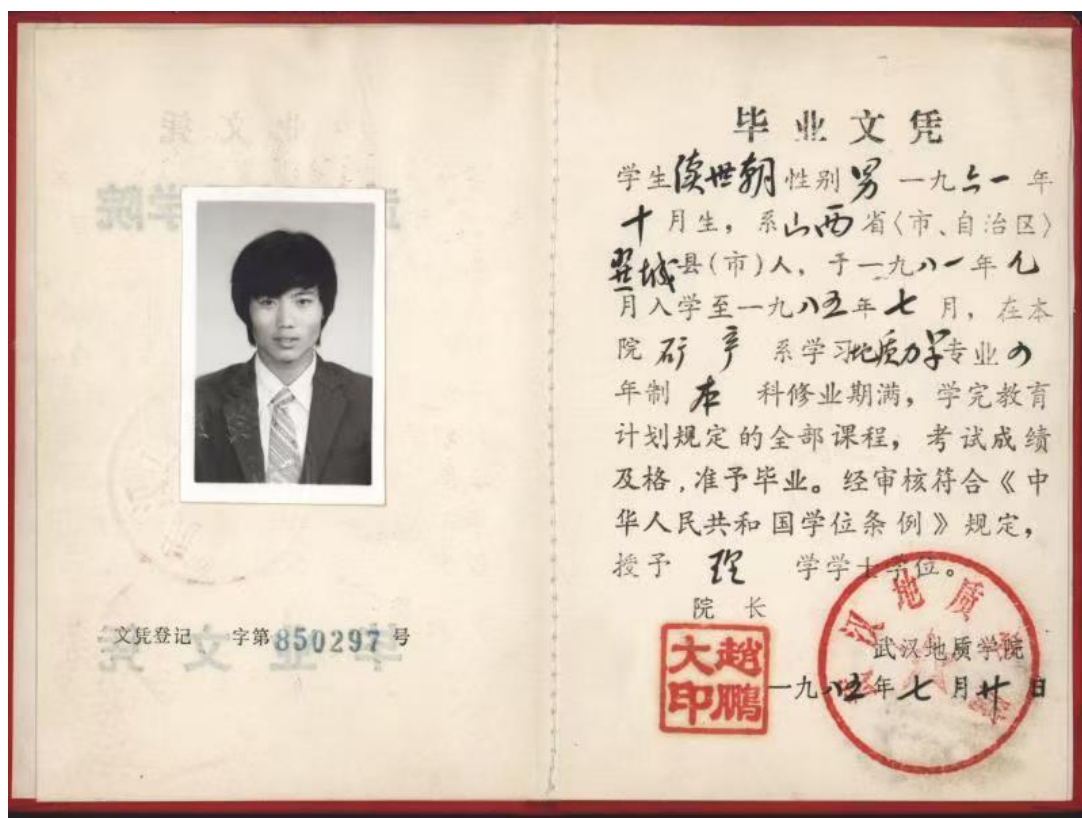 文凭登记 字第850297号
毕业文凭
学生 世朝 性别 男 一九六一 年
十 月生，系 山西 省〈市、自治区〉
翼城 县(市)人，于一九八一年 九
月入学至一九八五年 七 月，在本
院 矿产 系学习 地质力学 专业 四
年制 本 科修业期满，学完教育
计划规定的全部课程，考试成绩
及格，准予毕业。经审核符合《中
华人民共和国学位条例》规定，
授予 理 学学士学位。
院 长
赵鹏大印
武汉地质学院
武汉地质学院
一九八五年 七 月 廿 日